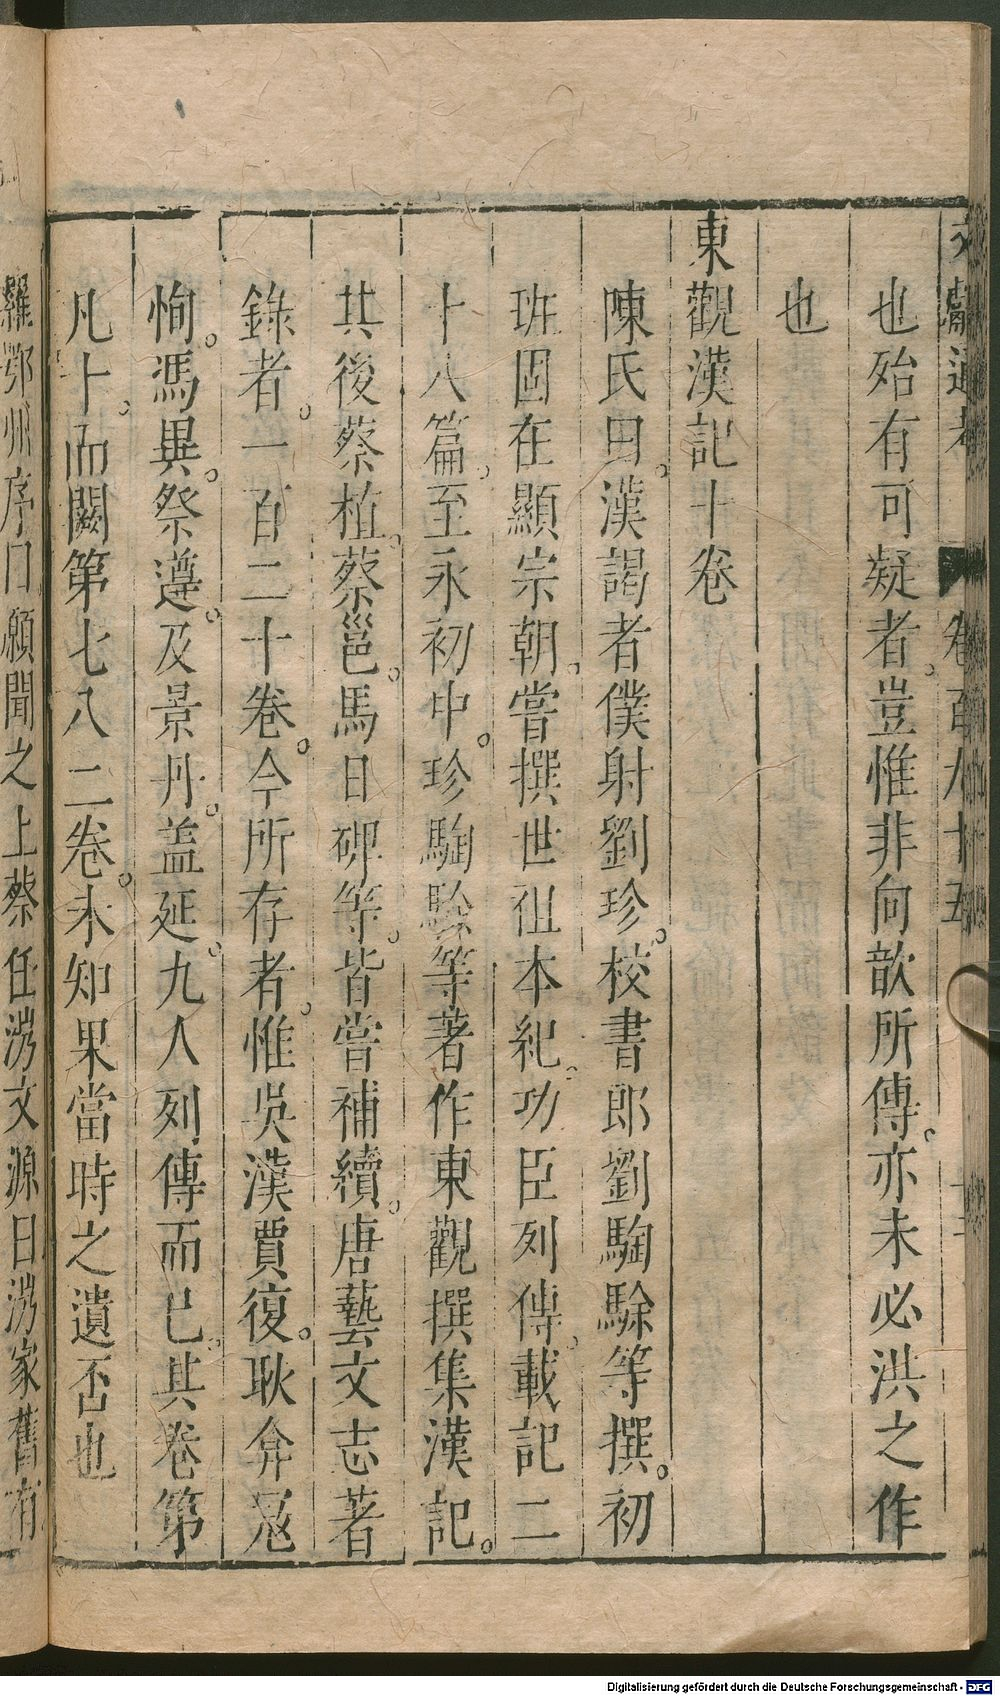 文獻通考 卷百九十五
也殆有可疑者豈惟非向歆所傳亦未必洪之作
也
東觀漢記十卷
陳氏曰漢謁者僕射劉珍校書郎劉騊駼等撰初
班固在顯宗朝嘗撰世祖本紀功臣列傳載記二
十八篇至永初中珍騊駼等著作東觀撰集漢記
其後蔡植蔡邕馬日磾等皆嘗補續唐藝文志著
錄者一百二十卷今所存者惟吳漢賈復耿弇寇
恂馮異祭遵及景丹蓋延九人列傳而已其卷第
凡十而闕第七八二卷未知果當時之遺否也
羅鄂州序曰願聞之上蔡任涝文源曰涝家舊有
Digitalisierung gefördert durch die Deutsche Forschungsgemeinschaft - DFG